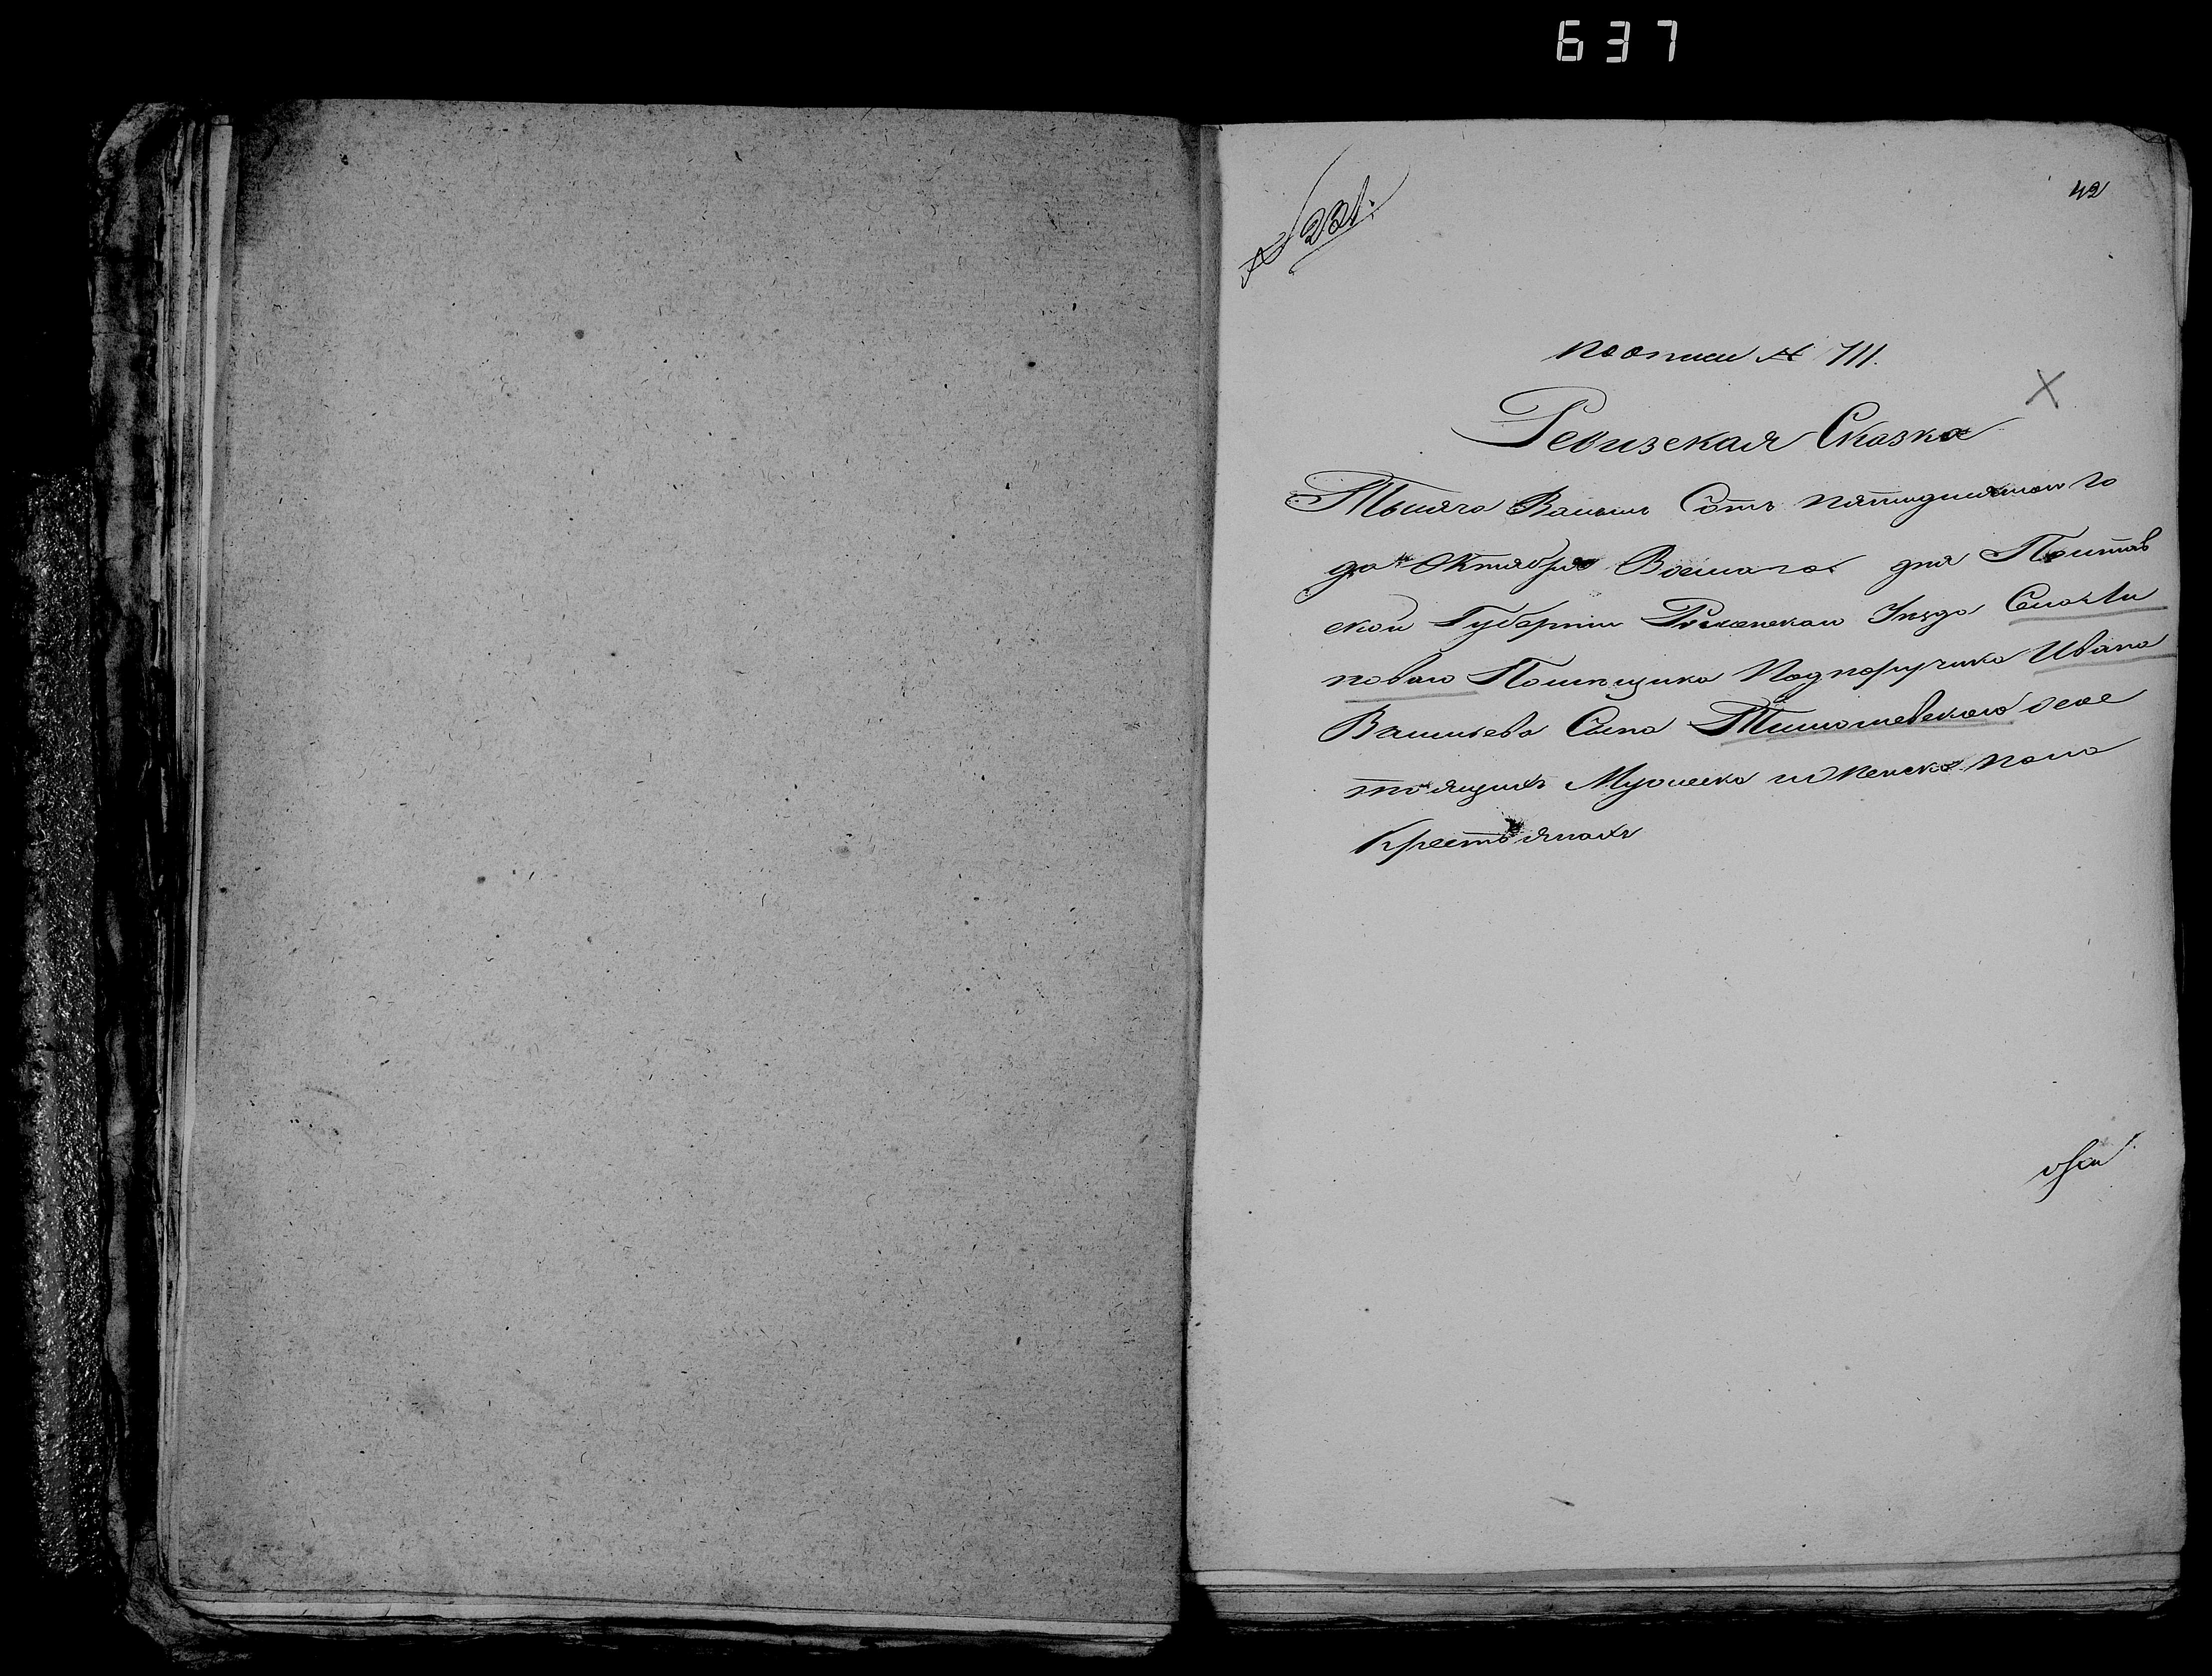 637
42
№ 221.
по описи № 711.
Ревизская Сказка
Тысяча Восемь Сотъ пятидесятого го
да Октября Восмаго дня Полтав
ской Губернии Роменскаго Уезда
новаго Помещика Подпоручика Ивана
Васильева Сына Тимошевскаго о сос
тоящихъ Мужеска и женска пола
Крестьянахъ